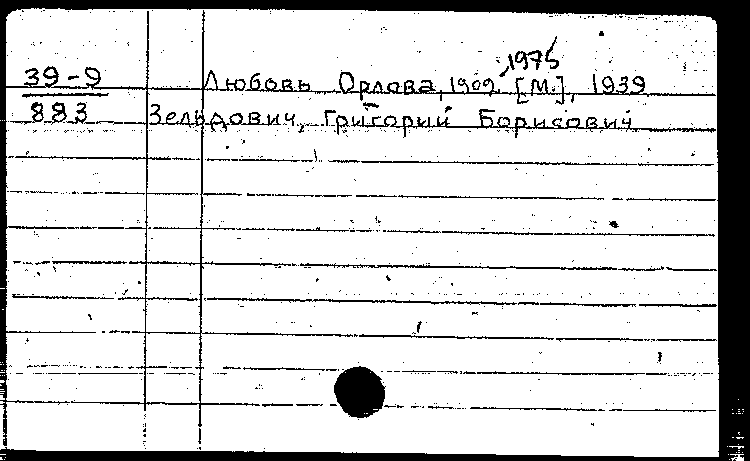 1975
39-9 Любовь Орлова, 1902 [М.], 1939
883 Зельдович, Григорий Борисович